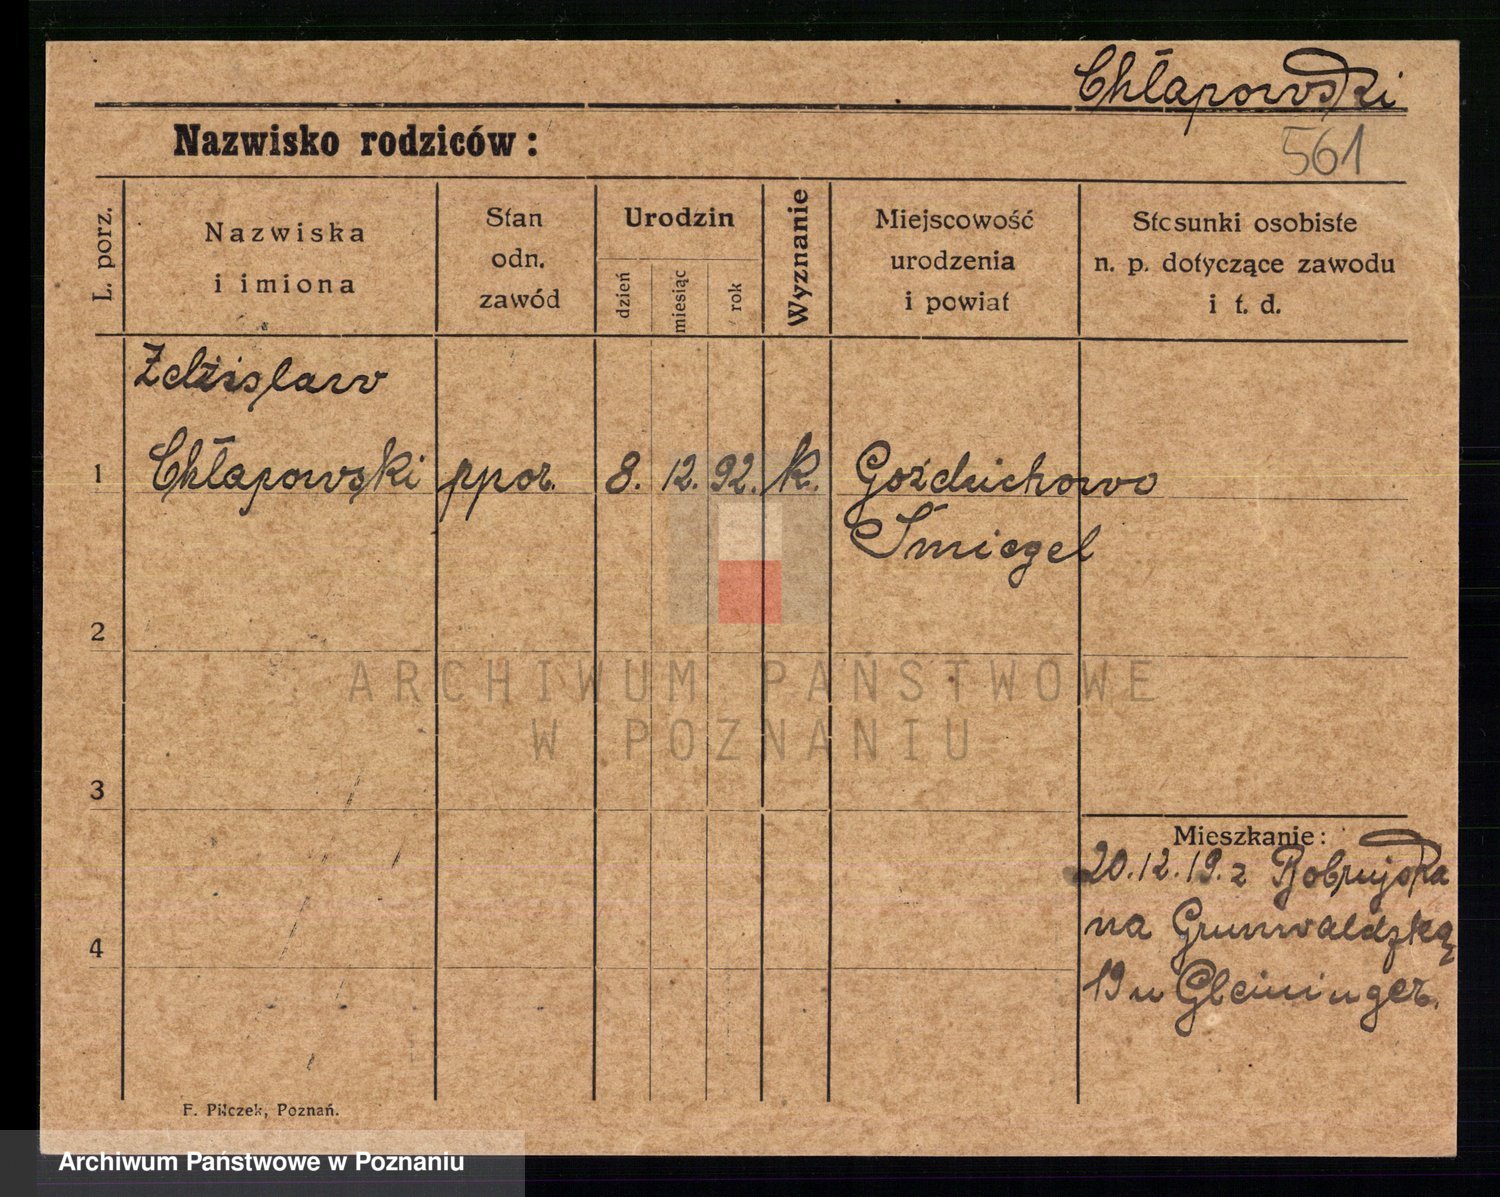 Chłapowski
Nazwisko rodziców:
561
L. porz.
Nazwiska
i imiona
Stan
odn.
zawód
Urodzin
dzień
miesiąc
rok
Wyznanie
Miejscowość
urodzenia
i powiat
Stosunki osobiste
n. p. dotyczące zawodu
i t. d.
Zdzisław
1 Chłapowski ppor. 8. 12. 92. k. Goździchowo
Śmiegel
2
ARCHIWUM PAŃSTWOWE
W POZNANIU
3
Mieszkanie:
20.12.19. z Bobrujska
na Grunwaldzką
4
19 u Gleininger.
F. Pilczek, Poznań.
Archiwum Państwowe w Poznaniu